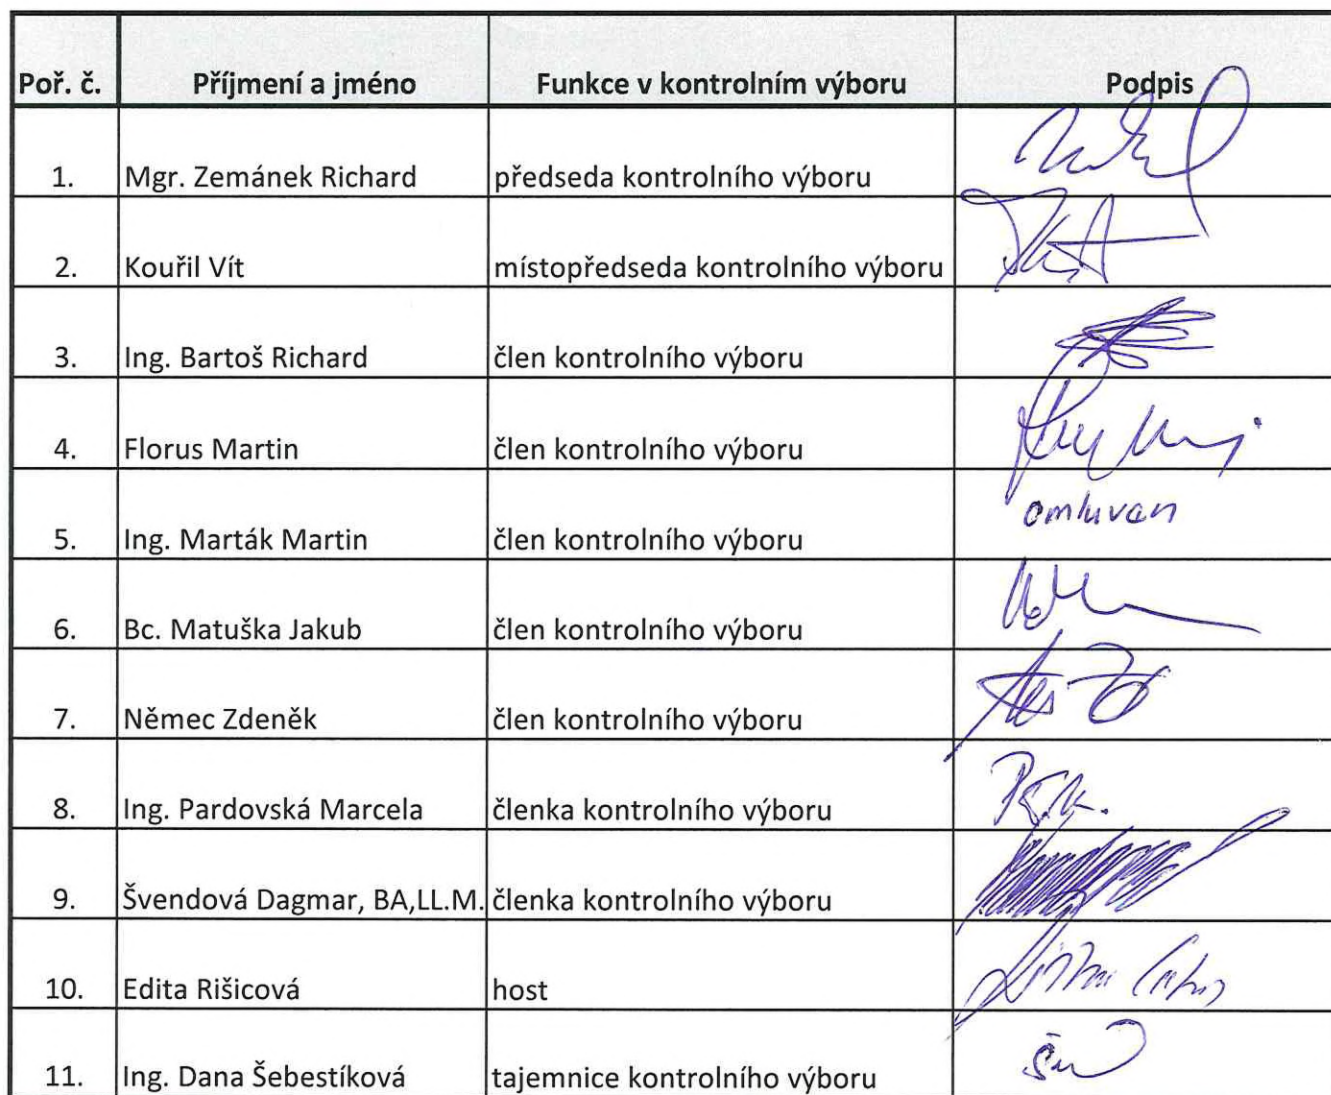 Poř. č. Příjmení a jméno Funkce v kontrolním výboru Podpis
1. Mgr. Zemánek Richard předseda kontrolního výboru
2. Kouřil Vít místopředseda kontrolního výboru
3. Ing. Bartoš Richard člen kontrolního výboru
4. Florus Martin člen kontrolního výboru
5. Ing. Marták Martin člen kontrolního výboru omluven
6. Bc. Matuška Jakub člen kontrolního výboru
7. Němec Zdeněk člen kontrolního výboru
8. Ing. Pardovská Marcela členka kontrolního výboru
9. Švendová Dagmar, BA,LL.M. členka kontrolního výboru
10. Edita Rišicová host
11. Ing. Dana Šebestíková tajemnice kontrolního výboru